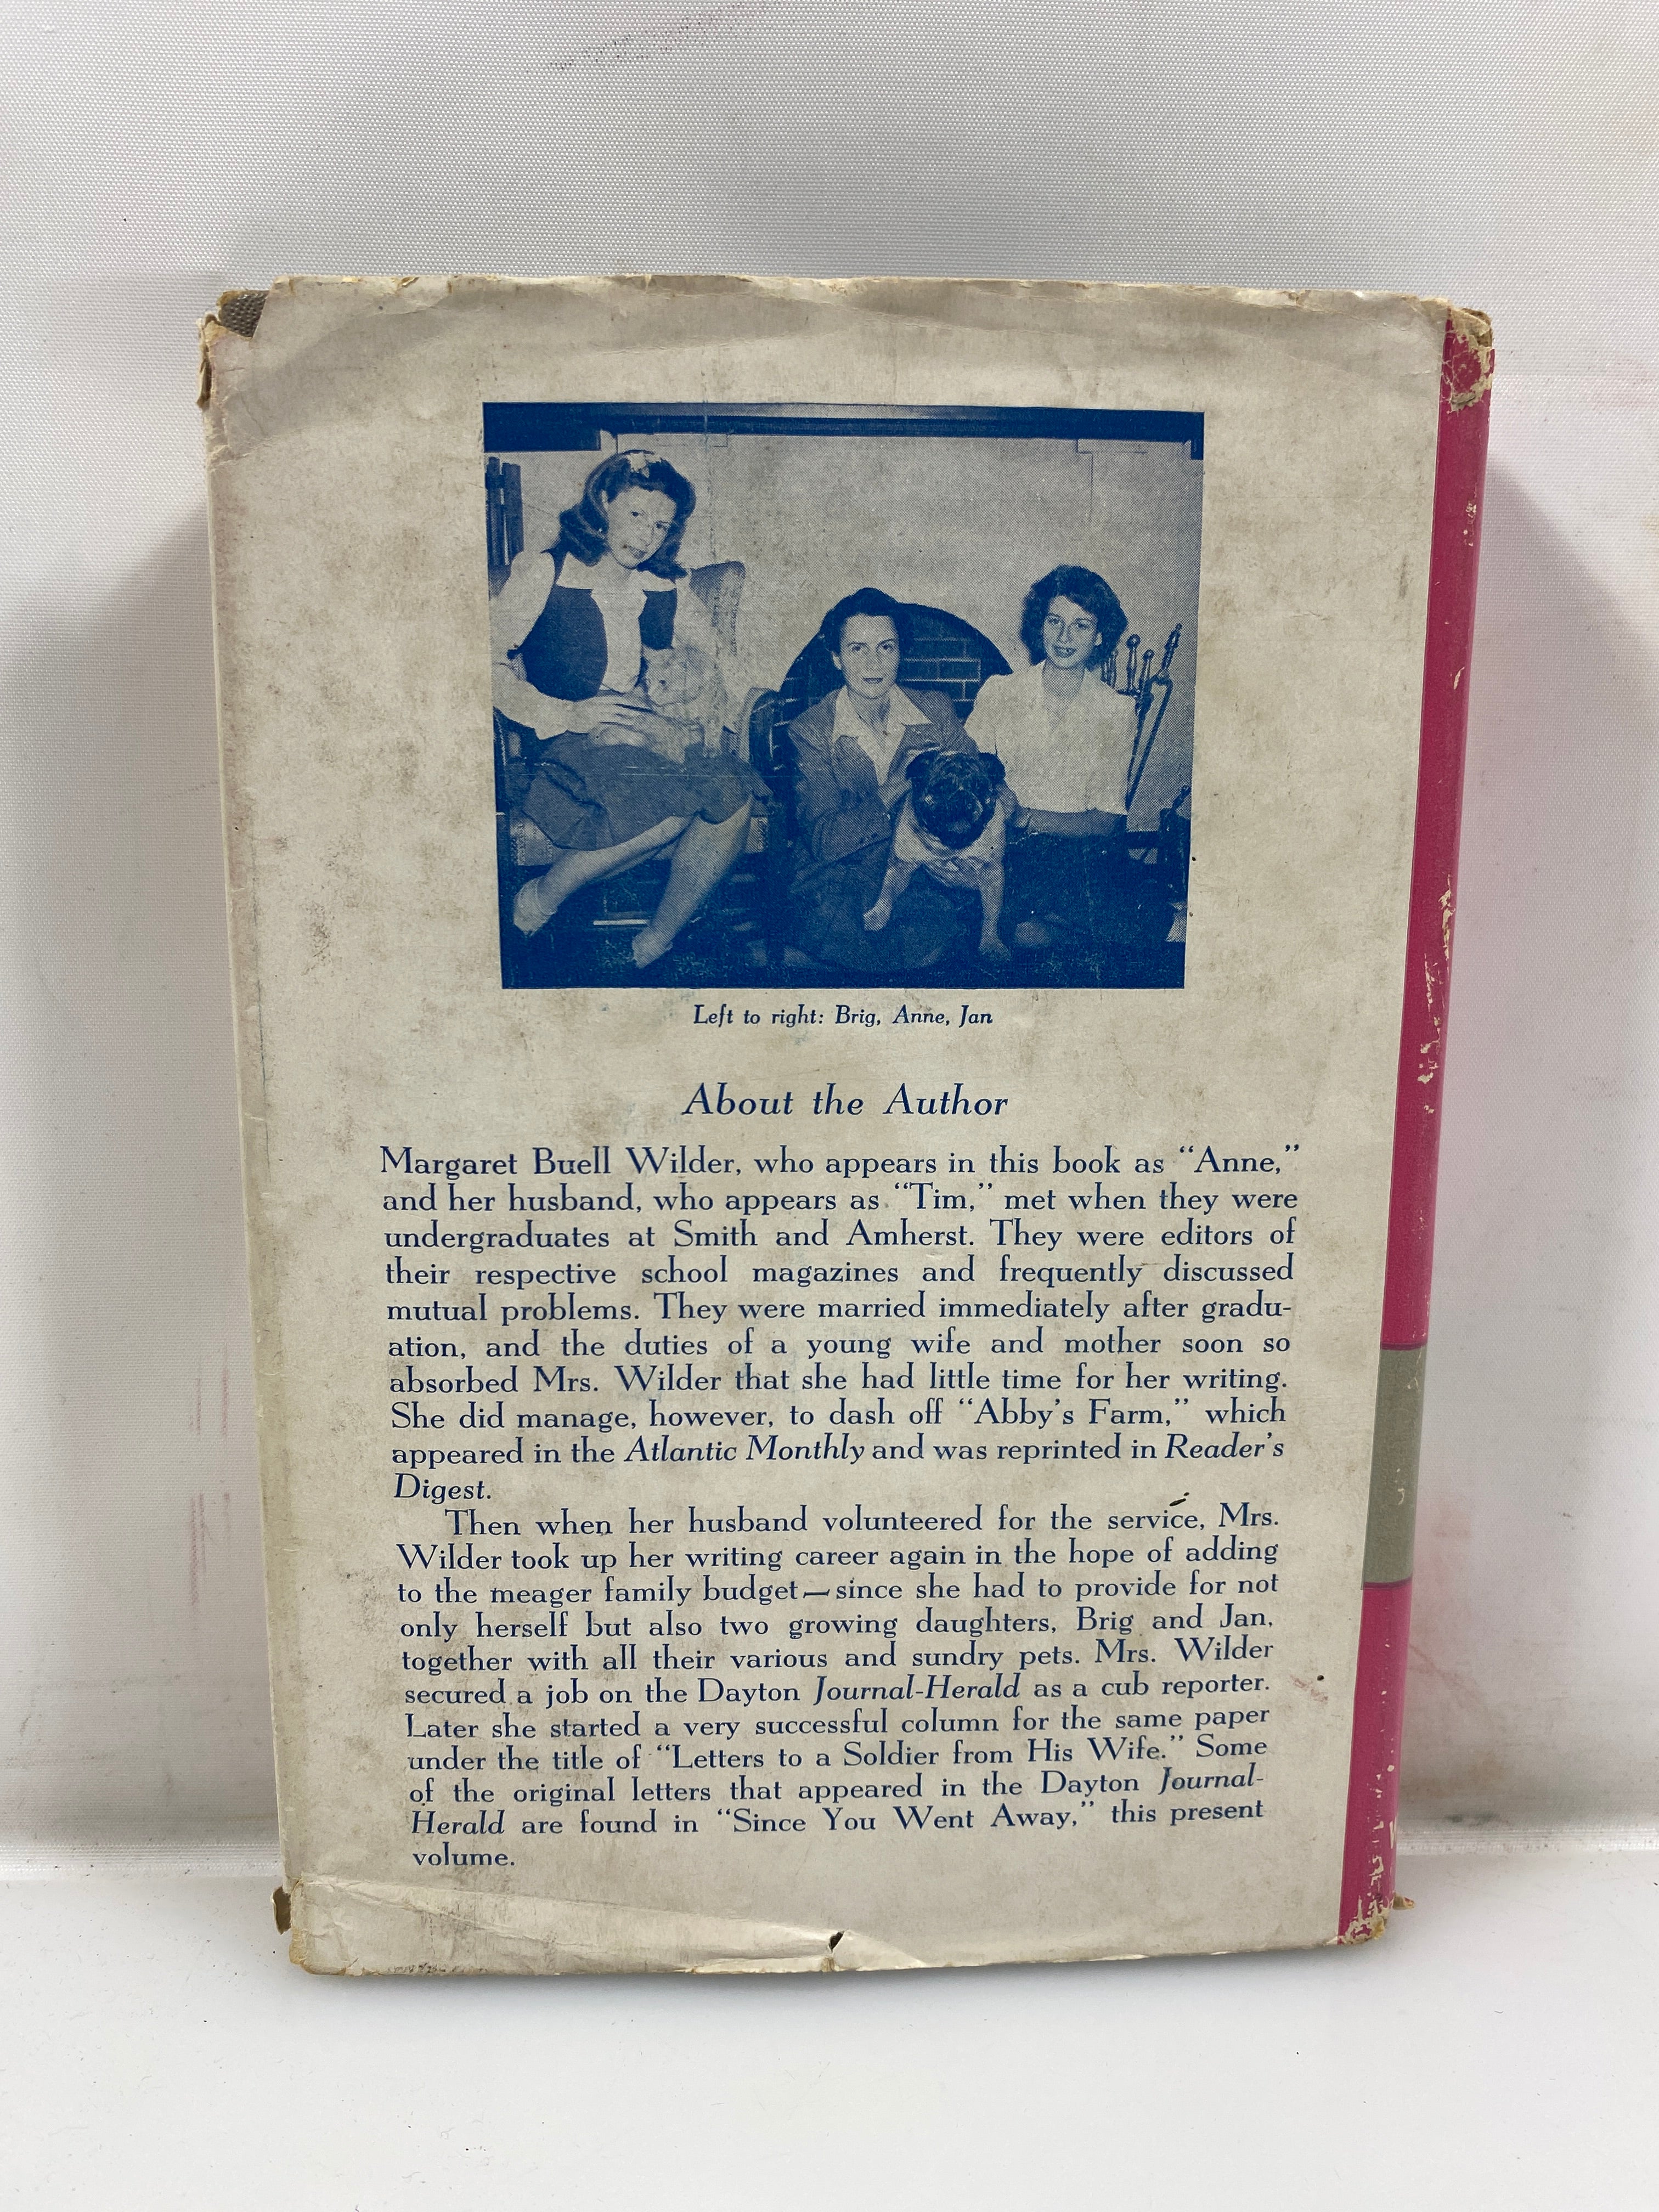 Left to right: Brig, Anne, Jan
About the Author
Margaret Buell Wilder, who appears in this book as “Anne,”
and her husband, who appears as “Tim,” met when they were
undergraduates at Smith and Amherst. They were editors of
their respective school magazines and frequently discussed
mutual problems. They were married immediately after gradu-
ation, and the duties of a young wife and mother soon so
absorbed Mrs. Wilder that she had little time for her writing.
She did manage, however, to dash off “Abby’s Farm,” which
appeared in the Atlantic Monthly and was reprinted in Reader’s
Digest.
Then when her husband volunteered for the service, Mrs.
Wilder took up her writing career again in the hope of adding
to the meager family budget—since she had to provide for not
only herself but also two growing daughters, Brig and Jan,
together with all their various and sundry pets. Mrs. Wilder
secured a job on the Dayton Journal-Herald as a cub reporter.
Later she started a very successful column for the same paper
under the title of “Letters to a Soldier from His Wife.” Some
of the original letters that appeared in the Dayton Journal-
Herald are found in “Since You Went Away,” this present
volume.